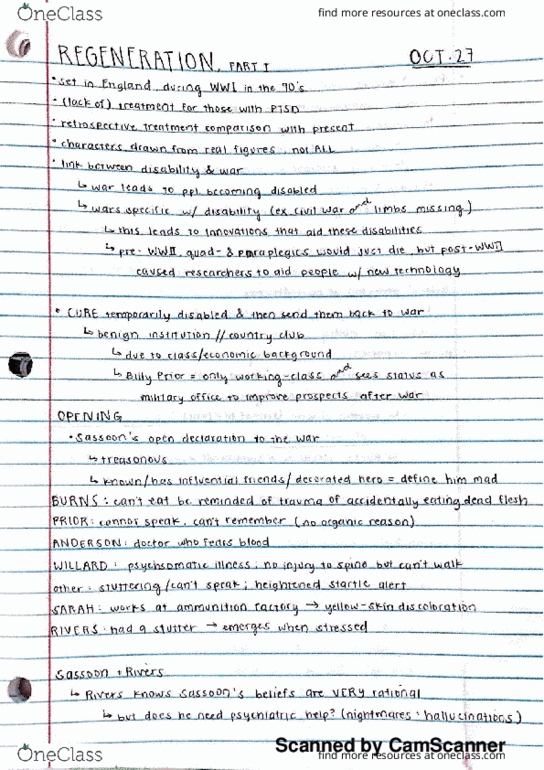 OneClass
find more resources at oneclass.com
REGENERATION, PART I
OCT. 27
• set in England during WWI in the 90's
• (lack of) treatment for those with PTSD
• retrospective treatment comparison with present
• characters drawn from real figures, not ALL
• link between disability & war
↳ war leads to ppl becoming disabled
↳ wars specific w/ disability (ex. civil war and limbs missing)
↳ this leads to innovations that aid these disabilities
↳ pre-WWII, quad- & paraplegics would just die, but post-WWII
caused researchers to aid people w/ new technology
• CURE temporarily disabled & then send them back to war
↳ benign institution // country club
↳ due to class/economic background
↳ Billy Prior = only working-class and sees status as
military office to improve prospects after war
OPENING
• Sassoon's open declaration to the war
↳ treasonous
↳ known/has influential friends/decorated hero = define him mad
BURNS: can't eat be reminded of trauma of accidentally eating dead flesh
PRIOR: cannot speak, can't remember (no organic reason)
ANDERSON: doctor who fears blood
WILLARD: psychsomatic illness; no injury to spine but can't walk
other: stuttering/can't speak; heightened startle alert
SARAH: works at ammunition factory → yellow-skin discoloration
RIVERS: had a stutter → emerges when stressed
Sassoon + Rivers
↳ Rivers knows Sassoon's beliefs are VERY rational
↳ but does he need psychiatric help? (nightmares + hallucinations)
Scanned by CamScanner
OneClass
find more resources at oneclass.com